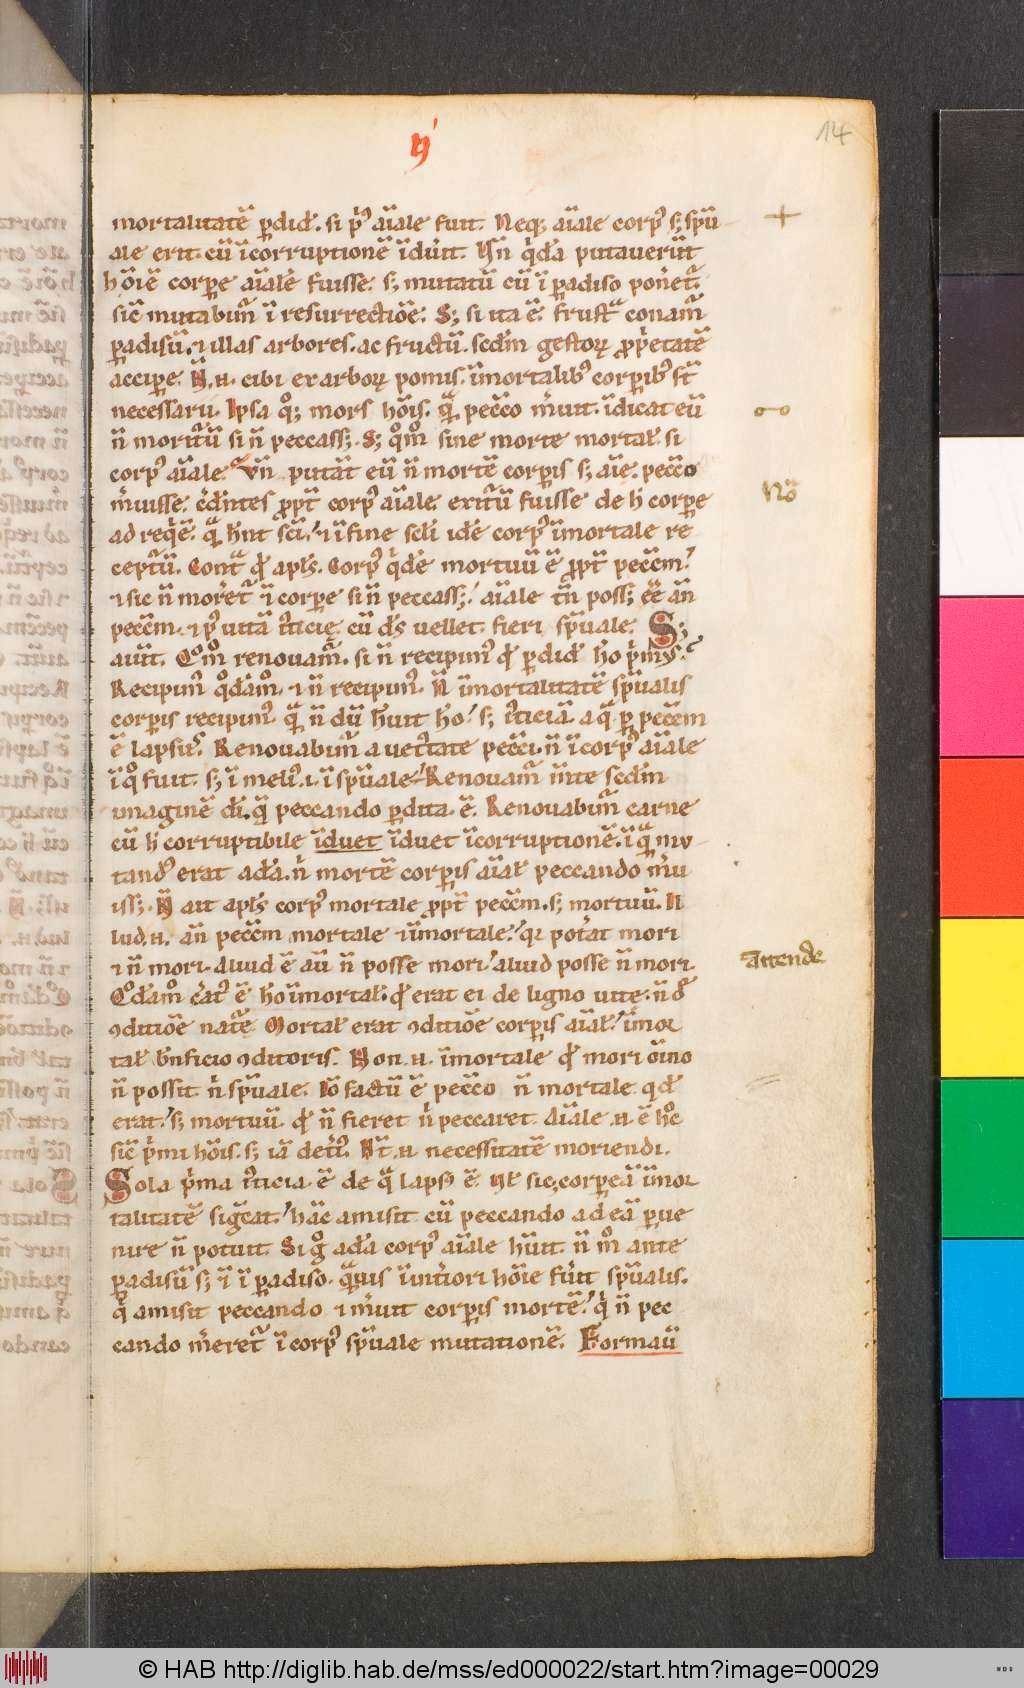 14
mortalitatē ꝑdid᷑. si pꝰ aīale fuit. Neq; aīale corpꝰ s; spū
ale erit cū īcorruptionē īdūit. Hīn q̇dā putauerūt
hoīem corpore aīale fuisse. s; mutatū cū ī ꝑadiso poneret᷑.
sic̄ mutabim᷑ ī resurrectiōe. S; si ita ē. frustᷓ conam᷑
ꝑadisū. ⁊ illas arbores. ac fructū. scdm̄ gestoꝝ ꝓp̄etatē
accipe. N̄.n. cibi ex arboꝝ pomis. īmortalibꝰ corꝑibꝰ st̄
necessarii. Ipsa qͦ; mors hōis. qᷓ pecc̄o m̄uit. īdicat eū
n̄ moritū si n̄ peccass;. S; qͦm̊ sine morte mortal̄. si
corpꝰ aīale. Vn̄ putāt eū n̄ mortē corꝑis s; aīe. pecc̄o
m̄uisse. c̄dentes ꝓpt̄ corpꝰ aīale. exitū fuisse de h̄ corꝑe
ad req̇ē. qᷓ hn̄t sc̄i. ⁊ ī fine sc̄li idē corpꝰ īmortale re
ceptū. Cont̄ qd̄ apls̄. Corpꝰ q̇dē mortuū ē ꝓpt̄ pecc̄m.
⁊ sic n̄ moret᷑ ī corꝑe si n̄ peccass;. aīale tn̄ poss; eē an̄
pecc̄m. ⁊ pꝰ uitā iusticie. cū dꝰ uellet. fieri spūale. S;
aiūt. Cͦm̊ renouam᷑. si n̄ recipimꝰ qd̄ ꝑdid᷑ hō p̄mꝰ.
Recipimꝰ qͦdam̊. ⁊ n̄ recipimꝰ. N̄ īmortalitatē spūalis
corꝑis recipimꝰ. qᷓ n̄ dū h̄uit hō. s; iusticiā. a qᷓ ꝑ pecc̄m
ē lapsus. Renouabim᷑ a uetꝰtate pecc̄i. n̄ ī corpꝰ aīale
ī qͦ fuit. s; ī meliꝰ. i. ī spūale. Renouam᷑ m̄te scdm̄
imaginē dī. qᷓ peccando ꝑdita ē. Renouabim᷑ carne
cū h̄ corruptibile īduet īduet īcorruptionē. ī qᷓ mu
tandꝰ erat adā. n̄ mortē corꝑis aīal̄ peccando m̄u
iss;. N̄ ait apls̄ corpꝰ mortale ꝓpt̄ pecc̄m. s; mortuū. Il
lud.n. an̄ pecc̄m mortale ⁊ īmortale. qꝛ potāt mori
⁊ n̄ mori. Aliud ē aū n̄ posse mori. aliud posse n̄ mori.
Qͦdam̊ c̄atꝰ ē hō īmortal̄. qd̄ erat ei de ligno uite. n̄ d̄
ꝯditiōe nat᷑e. Mortal̄ erat ꝯditiōe corꝑis aīal̄. īmor
tal̄ bn̄ficio ꝯditoris. Non.n. īmortale qd̄ mori oīno
n̄ possit n̄ spūale. Iō factū ē pecc̄o n̄ mortale qd̄
erat. s; mortuū. qd̄ n̄ fieret n̄ peccaret. Aīale.n. ē hͦc
sic̄ p̄mi hōis. s; iā detiꝰ. Ht̄.n. necessitatē moriendi.
Sola p̄ma iusticia ē de qᷓ lapsꝰ ē. Ul̄ sic; corꝑeā īmor
talitatē sig̅cat. hāc amisit cū peccando ad eā ꝑue
nire n̄ potuit. Si gͦ adā corpꝰ aīale h̄uit. n̄ m̊ ante
ꝑadisū s; ⁊ ī ꝑadiso. qᷓuis ī int̄iori hōie fūit spūalis.
qd̄ amisit peccando ⁊ m̄uit corꝑis mortē. q̇ n̄ pec
cando m̄eret᷑ ī corpꝰ spūale mutationē. Formau̅
Nō
Attende
© HAB http://diglib.hab.de/mss/ed000022/start.htm?image=00029